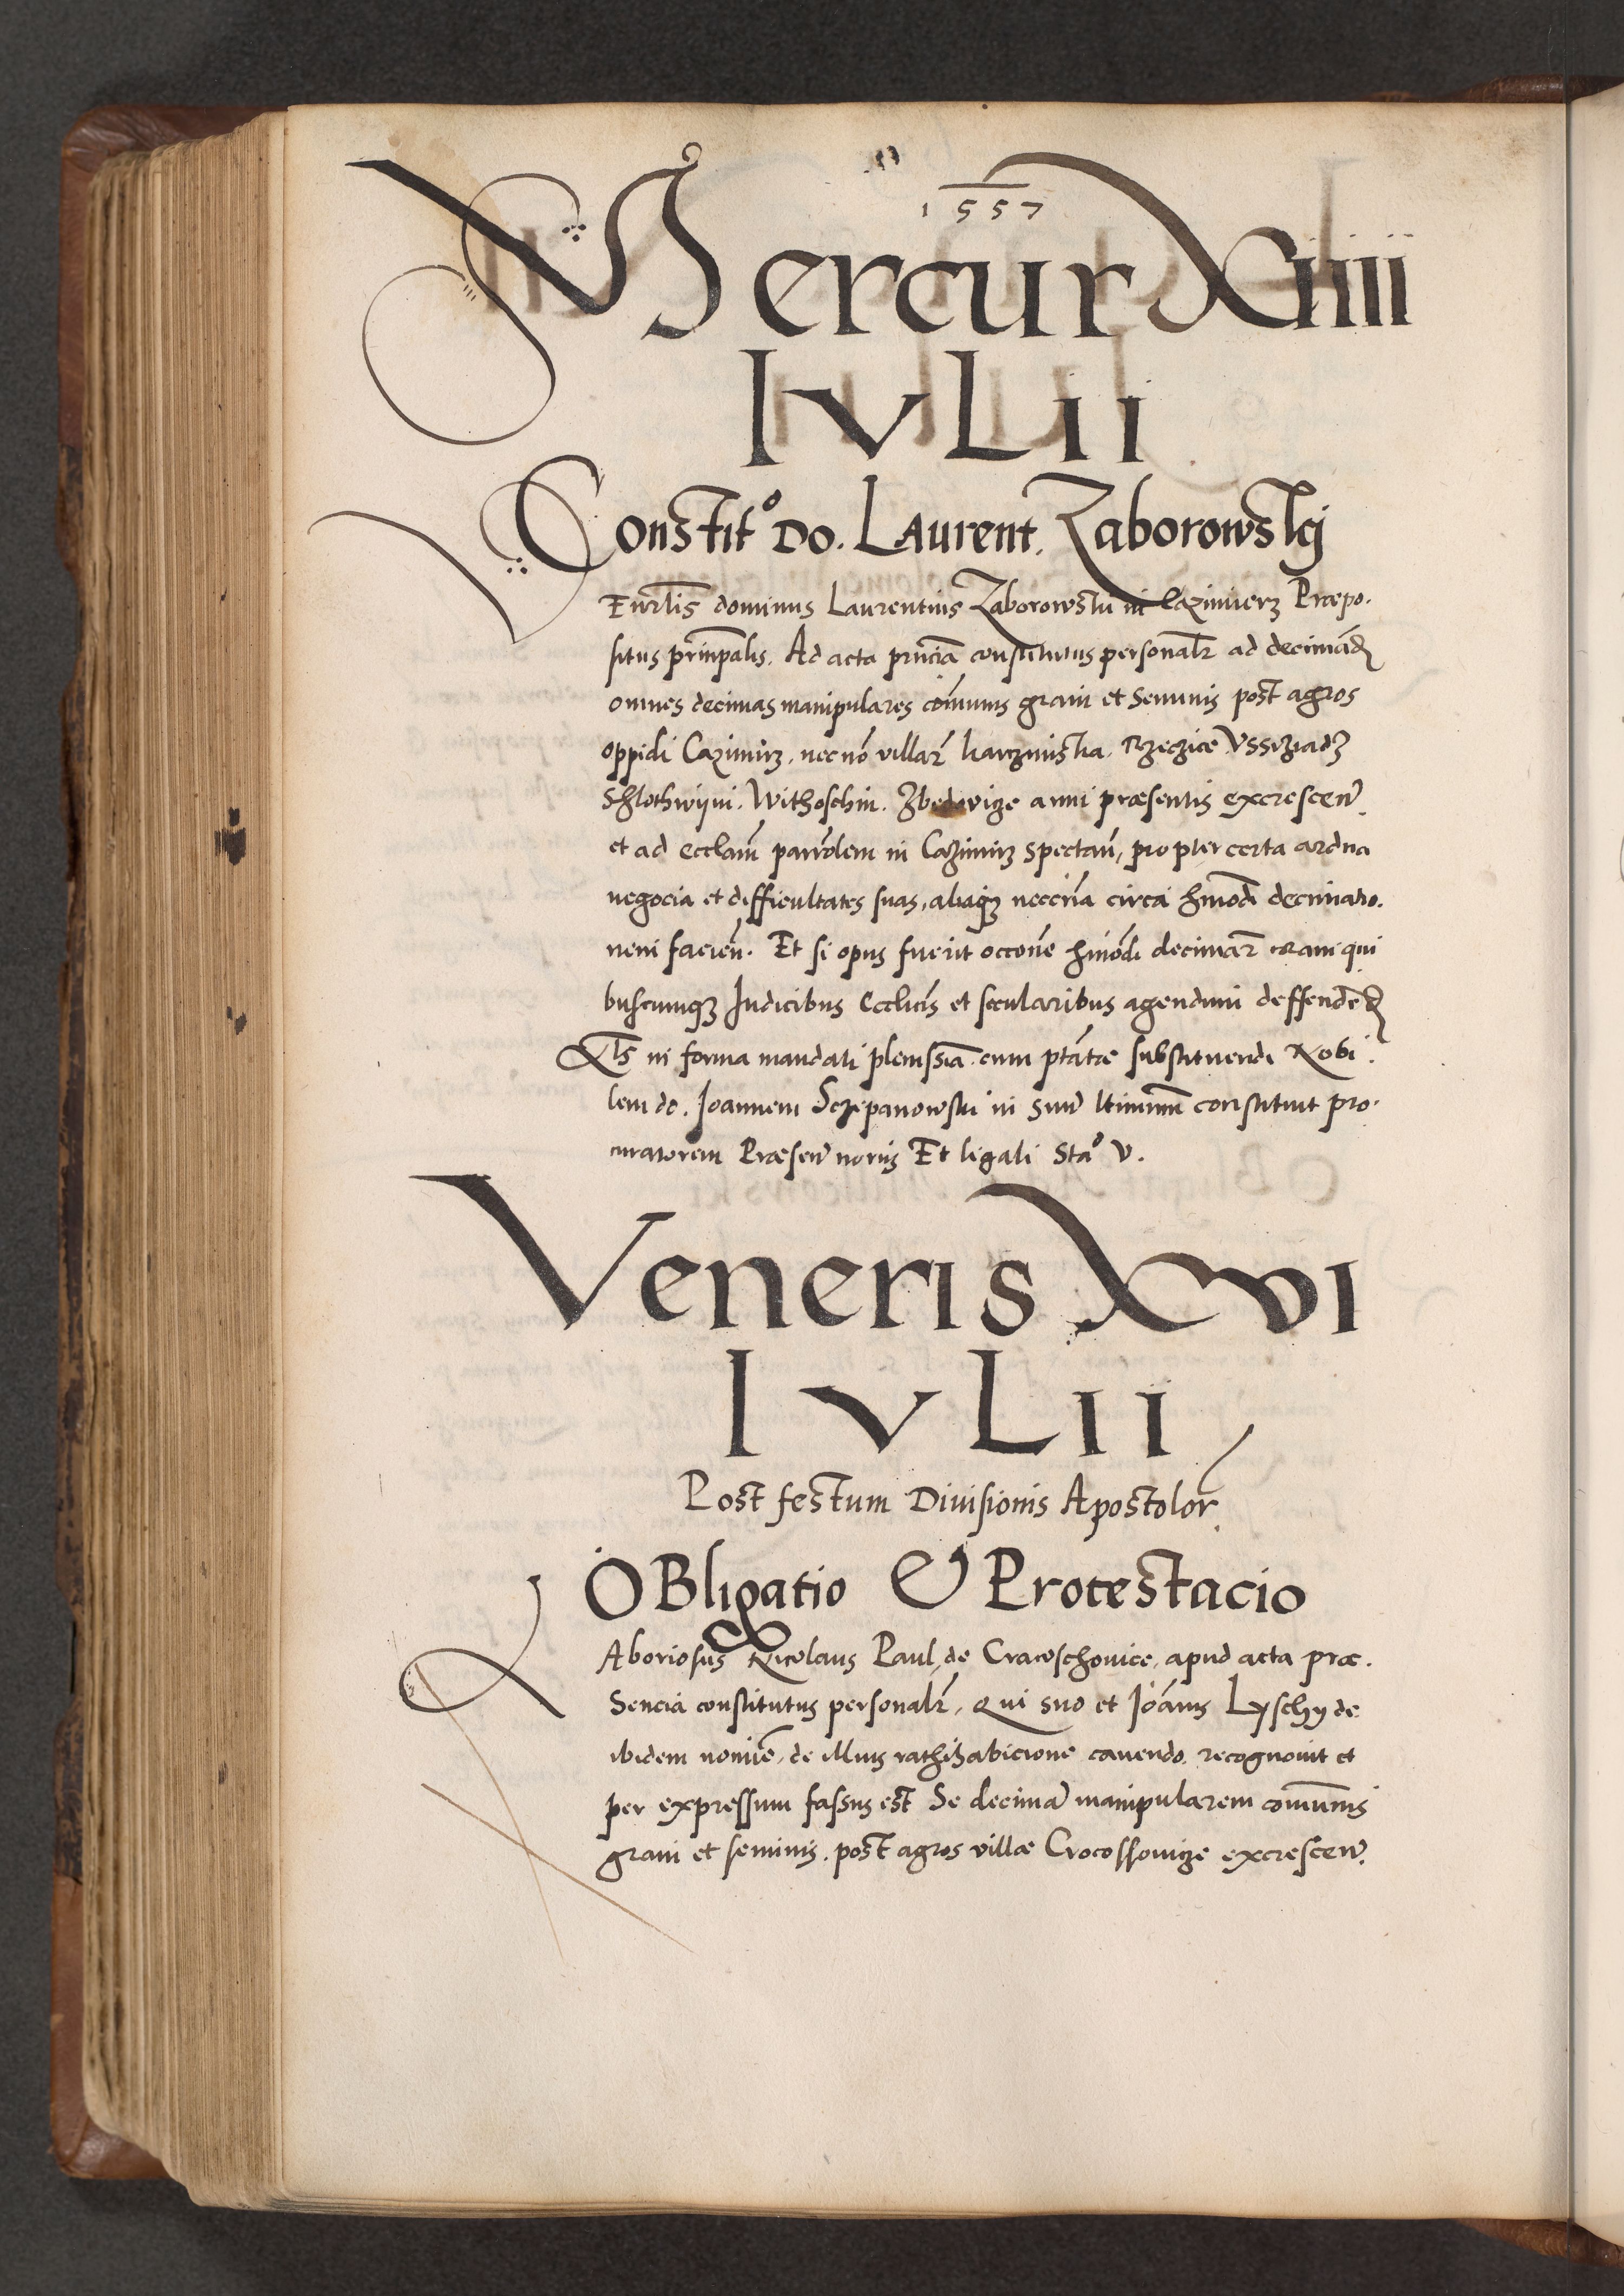 1557
Mercur Xiiii
IVLii
Constit° Do. Laurent. Zaborowskij
Venrlis dominus Laurentius Zaborowski in Cazimierz Præpo.
situs prinpalis. Ad acta prnciã constitutus personalr ad decimãd
omnes decimas manipulares cõmunis grani et Seminis post agros
oppidi Cazimirz, nec nõ villar̃
Withoschin. anni præsentis excrescen.
et ad eccleam parrolem in Cazimirz spectañ, propter certa ardua
negocia et difficultates suas, aliaqz neccria circa hmodi decimatio.
nem facień. Et si opus fuerit occone hmõdi decimar̃ coram qui
buscumqz Iudicibus Ecclicis et secularibus agendum deffendẽd
in forma mandati plenissia. cum ptate substituendi Nobi.
lem do. Ioannem Sczepanowski in suum ltimum constituit pro.
curatorem Præsen norijs Et ligali Sta° V.
Veneris XVI
IVLII
Post festum Diuisionis Apostolor
OBligatio & Protestacio
LAboriosus Nicolaus Paul, de Cracoschouice, apud acta præ.
Sencia constitutus personalr, Qui suo et Ioãnis Lyschy de
ibidem nomine, de illius rathihabicione cauendo, recognouit et
per expressum fassus est Se decimã manipularem comunis
grani et seminis, post agros villæ Crocossouicze excrescen.